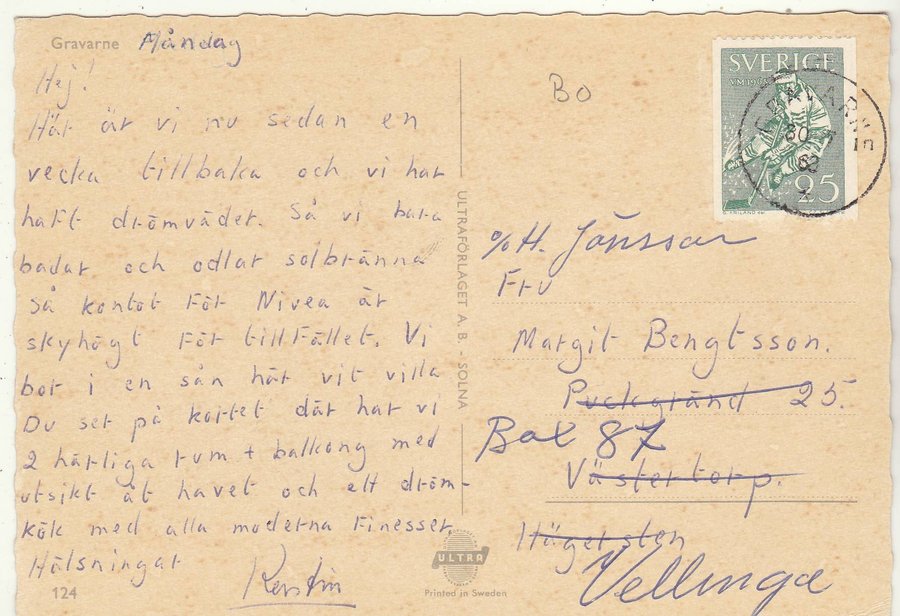 Gravarne Måndag
Hej!
Här är vi nu sedan en
vecka tillbaka och vi har
haft drömväder. Så vi bara
badar och odlar solbränna
så kontot för Nivea är
skyhögt för tillfället. Vi
bor i en sån här vit villa
Du ser på kortet där har vi
2 härliga rum + balkong med
utsikt åt havet och ett dröm-
kök med alla moderna finesser.
Hälsningar
Kerstin
124
ULTRAFÖRLAGET A. B. - SOLNA
ULTRA
Printed in Sweden
BO
SVERIGE
VM 1963
25
GRAVARNE
30
63
c/o H. Jönsson
Fru
Margit Bengtsson.
Puckgränd 25.
Box 87
Västertorp.
Hägersten
Vellinge